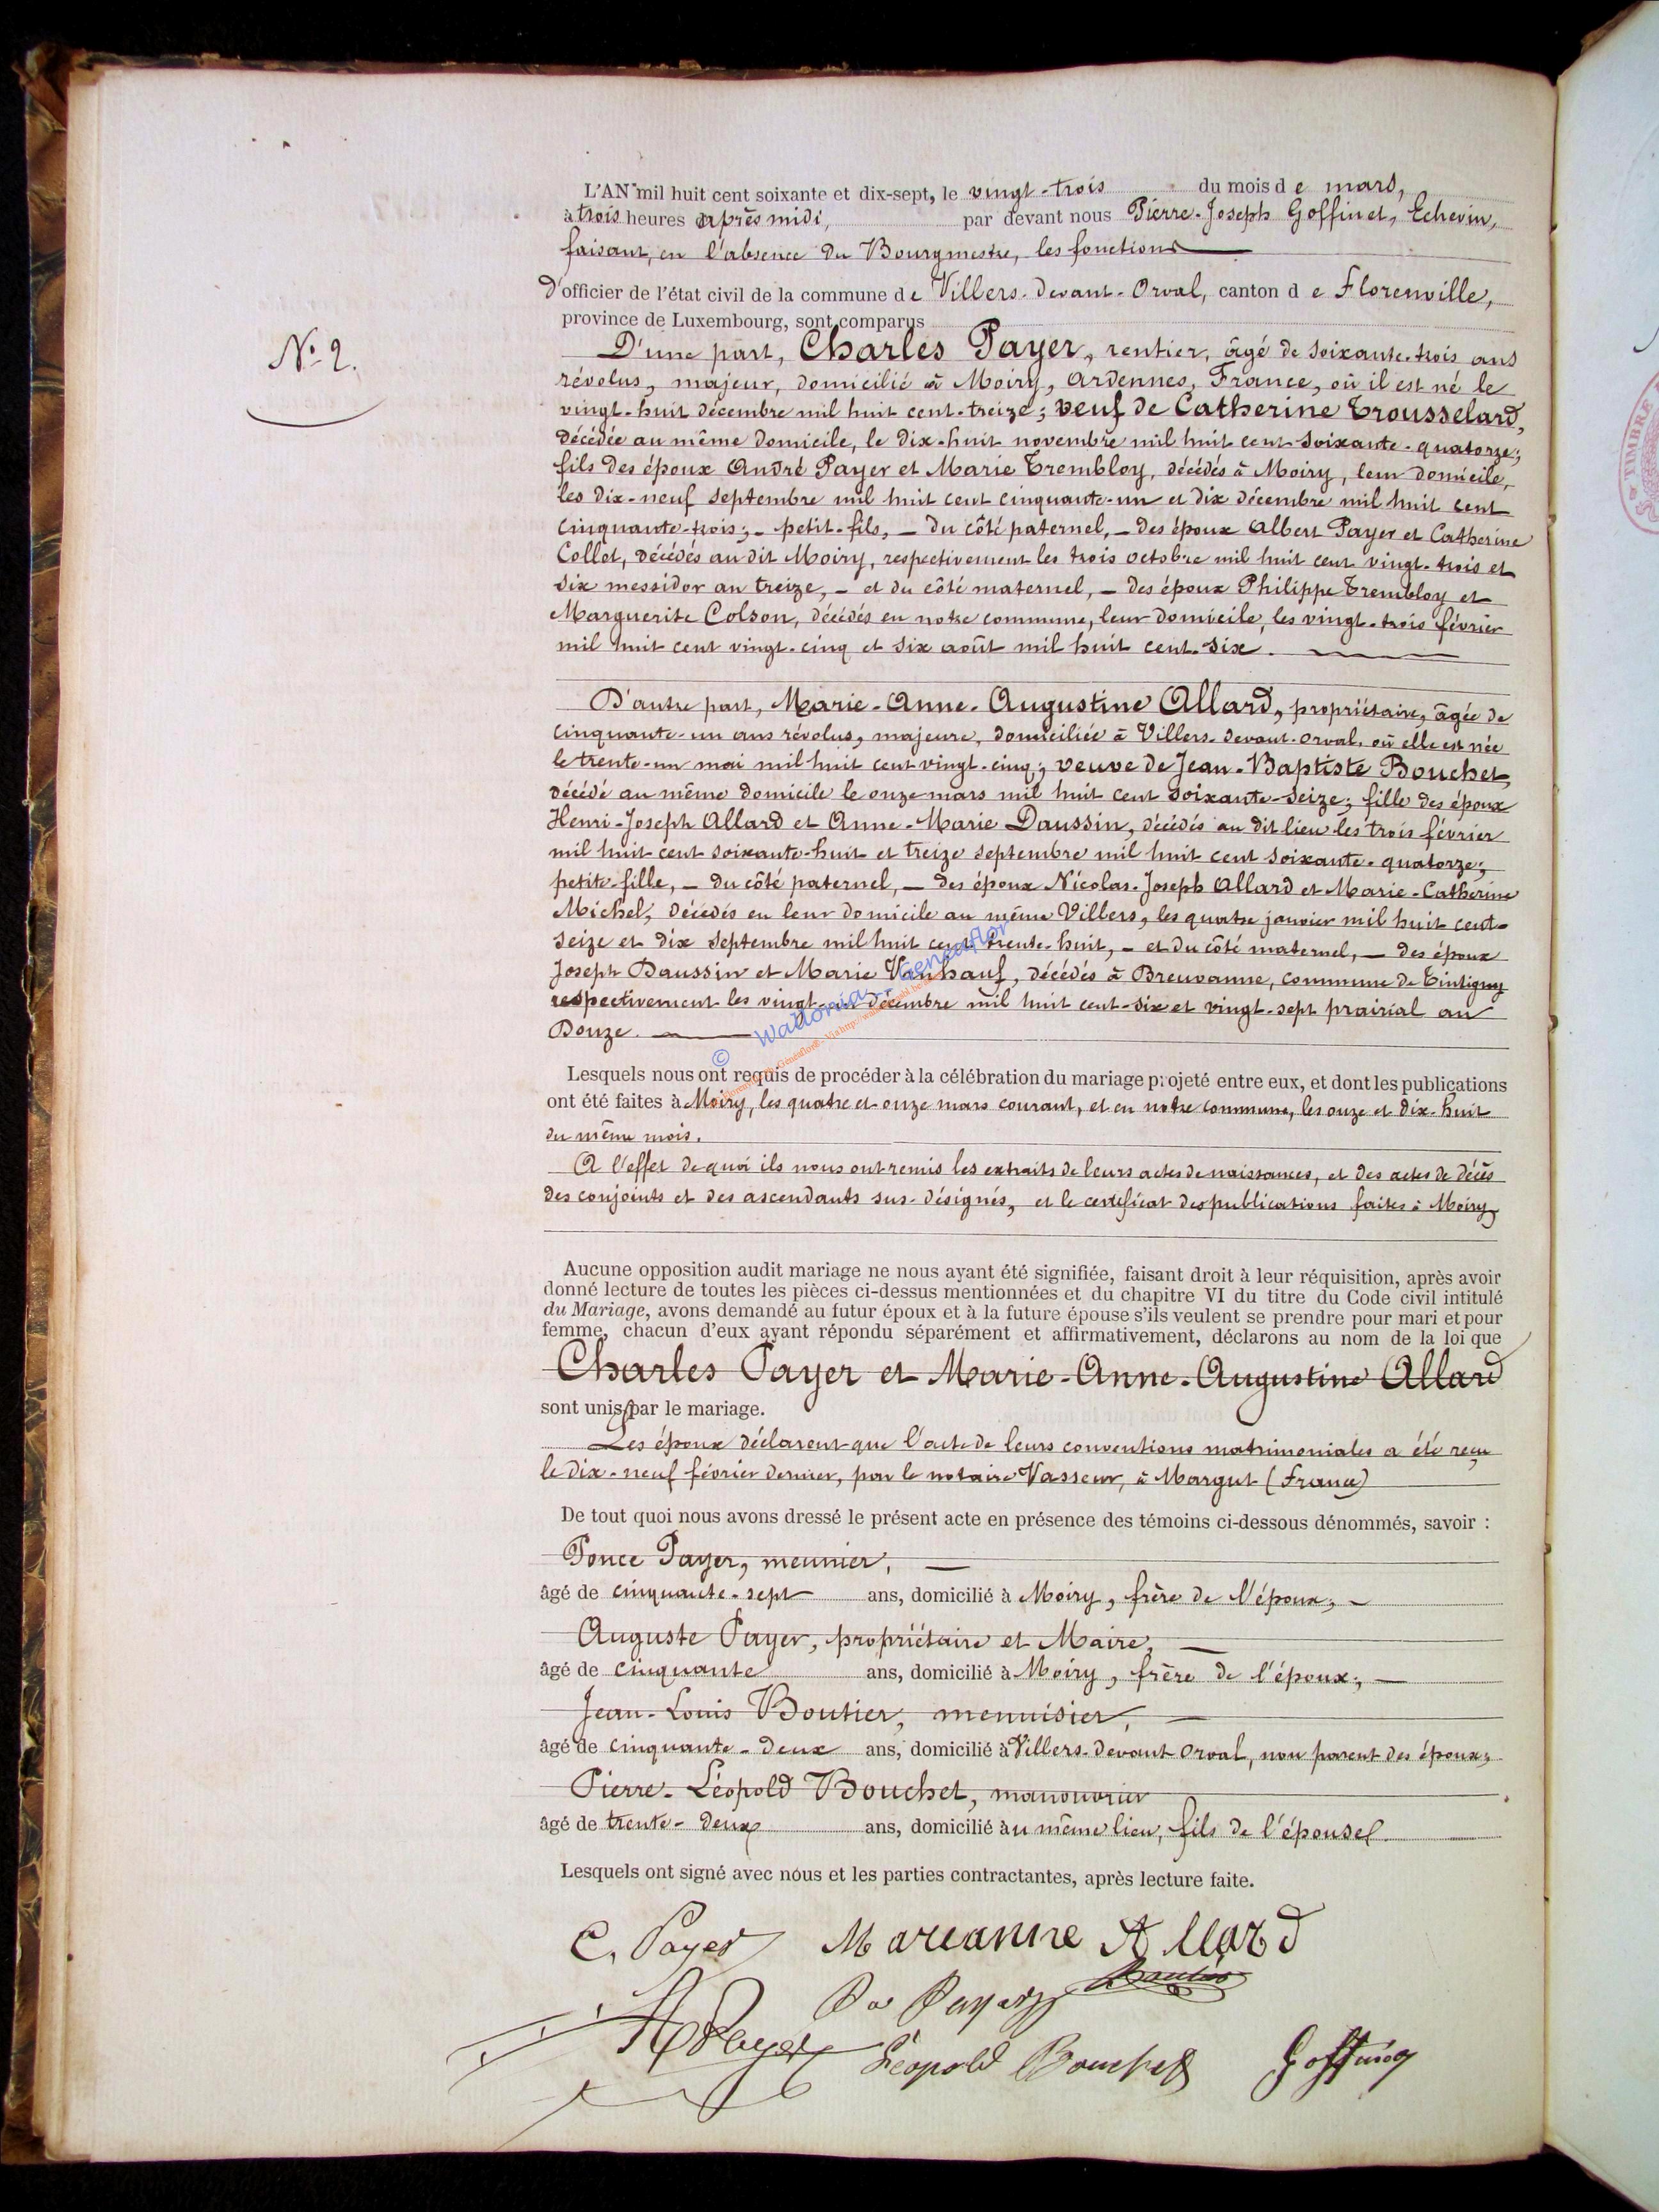 L'AN mil huit cent soixante et dix-sept, le vingt-trois du mois de mars,
à trois heures après midi, par devant nous Pierre-Joseph Goffinet, Echevin,
faisant, en l'absence du Bourgmestre, les fonctions
d'officier de l'état civil de la commune de Villers-devant-Orval, canton de Florenville,
province de Luxembourg, sont comparus
N° 2.
D'une part, Charles Payer, rentier, âgé de soixante-trois ans
révolus, majeur, domicilié à Moiry, Ardennes, France, où il est né le
vingt-huit décembre mil huit cent-treize; veuf de Catherine Trousselard,
décédée au même domicile, le dix-huit novembre mil huit cent soixante-quatorze;
fils des époux André Payer et Marie Trembloy, décédés à Moiry, leur domicile,
les dix-neuf septembre mil huit cent cinquante-un et dix décembre mil huit cent
cinquante-trois; - petit-fils, - du côté paternel, - des époux Albert Payer et Catherine
Collot, décédés au dit Moiry, respectivement les trois octobre mil huit cent vingt-trois et
six messidor an treize, - et du côté maternel, - des époux Philippe Trembloy et
Marguerite Colson, décédés en notre commune, leur domicile, les vingt-trois février
mil huit cent vingt-cinq et six août mil huit cent-six.
D'autre part, Marie-Anne-Augustine Allard, propriétaire, âgée de
cinquante-un ans révolus, majeure, domiciliée à Villers-devant-Orval, où elle est née
le trente-un mai mil huit cent vingt-cinq; veuve de Jean-Baptiste Bouchet,
décédé au même domicile le onze mars mil huit cent soixante-seize; fille des époux
Henri-Joseph Allard et Anne-Marie Daussin, décédés au dit lieu les trois février
mil huit cent soixante-huit et treize septembre mil huit cent soixante-quatorze;
petite-fille, - du côté paternel, - des époux Nicolas-Joseph Allard et Marie-Catherine
Michel, décédés en leur domicile au même Villers, les quatre janvier mil huit cent-
seize et dix septembre mil huit cent trente-huit, - et du côté maternel, - des époux
Joseph Daussin et Marie Vanhauf, décédés à Breuvanne, commune de Tintigny
respectivement les vingt- décembre mil huit cent-six et vingt-sept prairial an
Douze.
© Wallonia - Geneaflor
Lesquels nous ont requis de procéder à la célébration du mariage projeté entre eux, et dont les publications
ont été faites à Moiry, les quatre et onze mars courant, et en notre commune, les onze et dix-huit
du même mois.
A l'effet de quoi ils nous ont remis les extraits de leurs actes de naissances, et des actes de décès
des conjoints et des ascendants sus-désignés, et le certificat des publications faites à Moiry,
Aucune opposition audit mariage ne nous ayant été signifiée, faisant droit à leur réquisition, après avoir
donné lecture de toutes les pièces ci-dessus mentionnées et du chapitre VI du titre du Code civil intitulé
du Mariage, avons demandé au futur époux et à la future épouse s'ils veulent se prendre pour mari et pour
femme, chacun d'eux ayant répondu séparément et affirmativement, déclarons au nom de la loi que
Charles Payer et Marie-Anne-Augustine Allard
sont unis par le mariage.
Les époux déclarent que l'acte de leurs conventions matrimoniales a été reçu
le dix-neuf février dernier, par le notaire Vasseur, à Margut (France)
De tout quoi nous avons dressé le présent acte en présence des témoins ci-dessous dénommés, savoir :
Ponce Payer, meunier,
âgé de cinquante-sept ans, domicilié à Moiry, frère de l'époux;
Auguste Payer, propriétaire et Maire,
âgé de cinquante ans, domicilié à Moiry, frère de l'époux;
Jean-Louis Boutier, menuisier,
âgé de cinquante-deux ans, domicilié à Villers-devant Orval, non parent des époux;
Pierre-Léopold Bouchet, manouvrier
âgé de trente-deux ans, domicilié au même lieu, fils de l'épouse.
Lesquels ont signé avec nous et les parties contractantes, après lecture faite.
C. Payer Marianne Allard
Payer Boutier
A Payer Léopold Bouchet Goffinet
TIMBRE